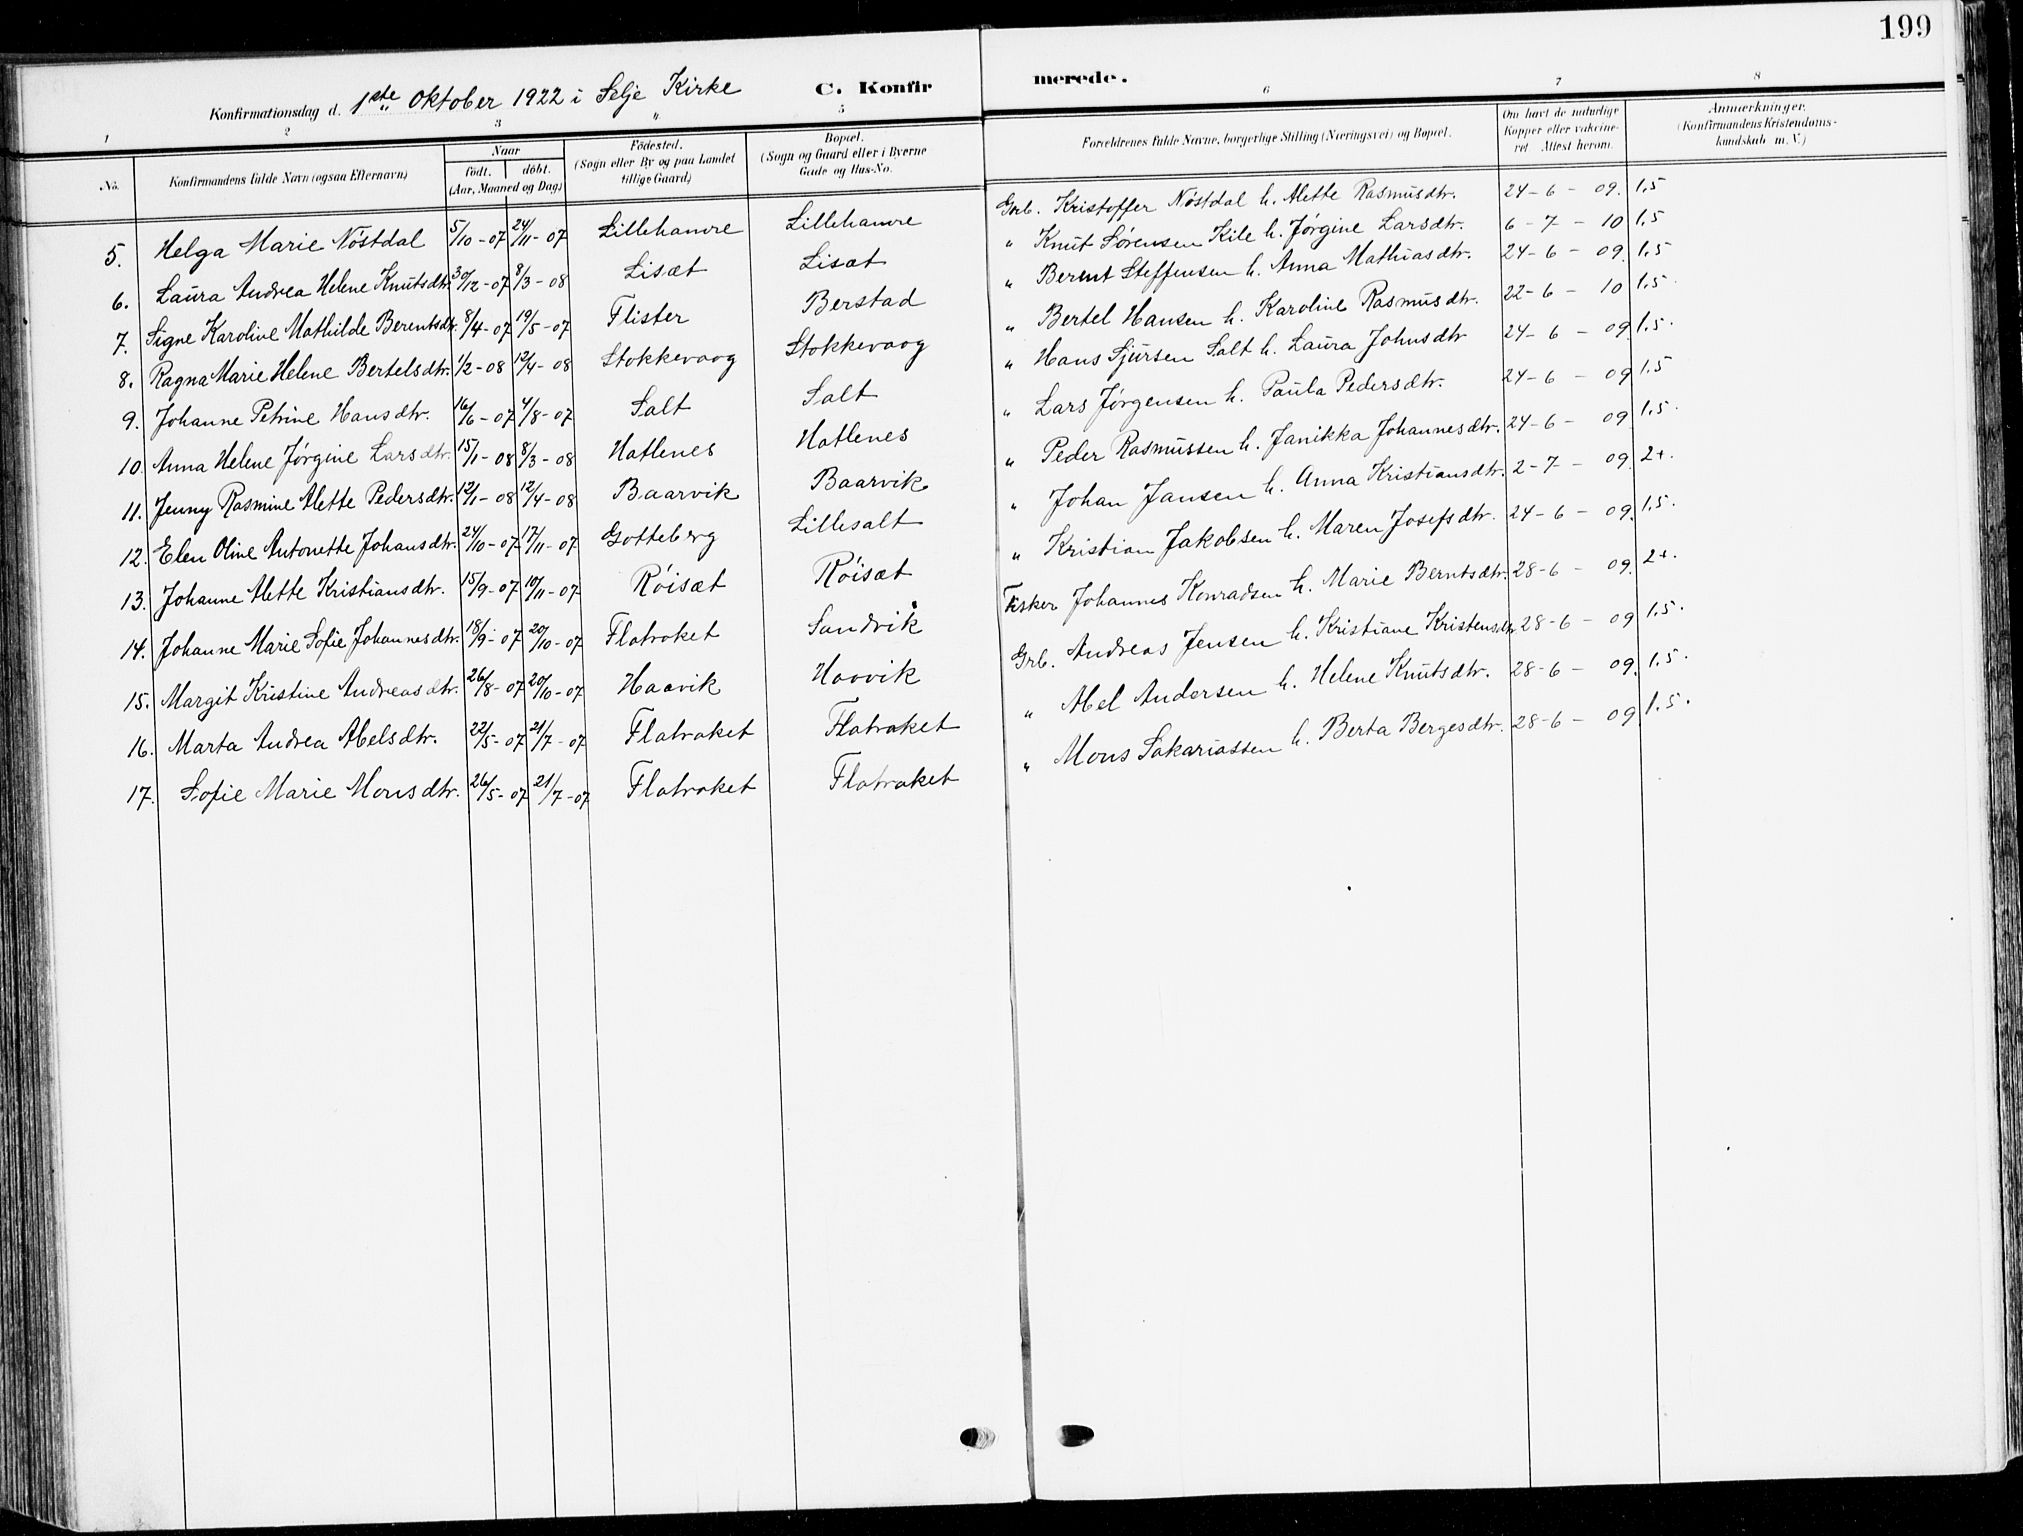 199
Konfirmationsdag d. 1ste Oktober 1922 i Selje Kirke C. Konfirmerede.
1 2 3 5 6 7 8
No. Konfirmandens fulde Navn (ogsaa Efternavn) Naar født. døbt. (Aar, Maaned og Dag) Fødested. (Sogn eller By og paa Landet tillige Gaard) Bopæl. (Sogn og Gaard eller i Byerne Gade og Hus-No. Forældrenes fulde Navne, borgerlige Stilling (Næringsvei) og Bopæl. Om havt de naturlige Kopper eller vakcineret. Attest herom. Anmærkninger. (Konfirmandens Kristendomskundskab m. V.)
5. Helga Marie Nøstdal 5/10-07 24/11-07 Lillehamre Lillehamre Grb. Kristoffer Nøstdal h. Alette Rasmusdtr. 24-6-09. 1.5
6. Laura Andrea Helene Knutsdtr. 30/12-07 8/3-08 Lisæt Lisæt " Knut Sørensen Kile h. Jørgine Larsdtr. 6-7-10 1.5
7. Signe Karoline Mathilde Berentsdtr. 8/4-07 19/5-07 Flister Berstad " Berent Steffensen h. Anna Mathiasdtr. 24-6-09. 1.5
8. Ragna Marie Helene Bertelsdtr. 1/2-08 12/4-08 Stokkevaag Stokkevaag " Bertel Hansen h. Karoline Rasmusdtr. 22-6-10 1.5.
9. Johanne Petrine Hansdtr. 16/6-07 4/8-07 Salt Salt " Hans Sjursen Salt h. Laura Johnsdtr 24-6-09. 1.5.
10. Anna Helene Jørgine Larsdtr. 15/1-08 8/3-08 Hatlenes Hatlenes " Lars Jørgensen h. Paula Pedersdtr. 24-6-09 1.5
11. Jenny Rasmine Alette Pedersdtr. 12/1-08 12/4-08 Baarvik Baarvik " Peder Rasmussen h. Janikka Johannesdtr. 24-6-09 1.5.
12. Elen Oline Antonette Johansdtr. 24/10-07 17/11-07 Gotteberg Lillesalt " Johan Jansen h. Anna Kristiansdtr. 2-7-09. 2+.
13. Johanne Alette Kristiansdtr. 15/9-07 10/11-07 Røisæt Røisæt " Kristian Jakobsen h. Maren Josefsdtr. 24-6-09. 1.5.
14. Johanne Marie Sofie Johannesdtr. 18/9-07 20/10-07 Flatraket Sandvik Fisker Johannes Konradsen h. Marie Berntsdtr. 28-6-09. 2+.
15. Margit Kristine Andreasdtr. 26/8-07 20/10-07 Haavik Haavik Grb. Andreas Jensen h. Kristiane Kristensdtr 28-6-09 1.5.
16. Marta Andrea Abelsdtr. 22/5-07 21/7-07 Flatraket Flatraket " Abel Andersen h. Helene Knutsdtr. 28-6-09. 1.5.
17. Sofie Marie Monsdtr. 26/5-07 21/7-07 Flatraket Flatraket " Mons Sakariassen h. Berta Bergesdtr. 28-6-09 1.5.